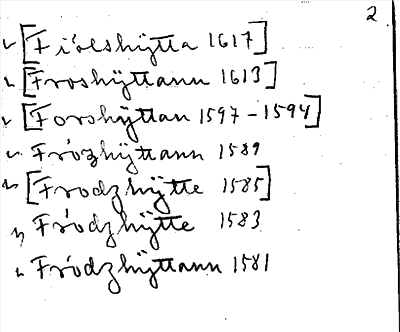 2
[Fröeshÿtta 1617]
[Froshÿttann 1613]
[Forshÿttan 1597-1594]
Frózhÿttann 1589
[Frodzhÿtte 1585]
Fródzhÿtte 1583
Fródzhÿttann 1581